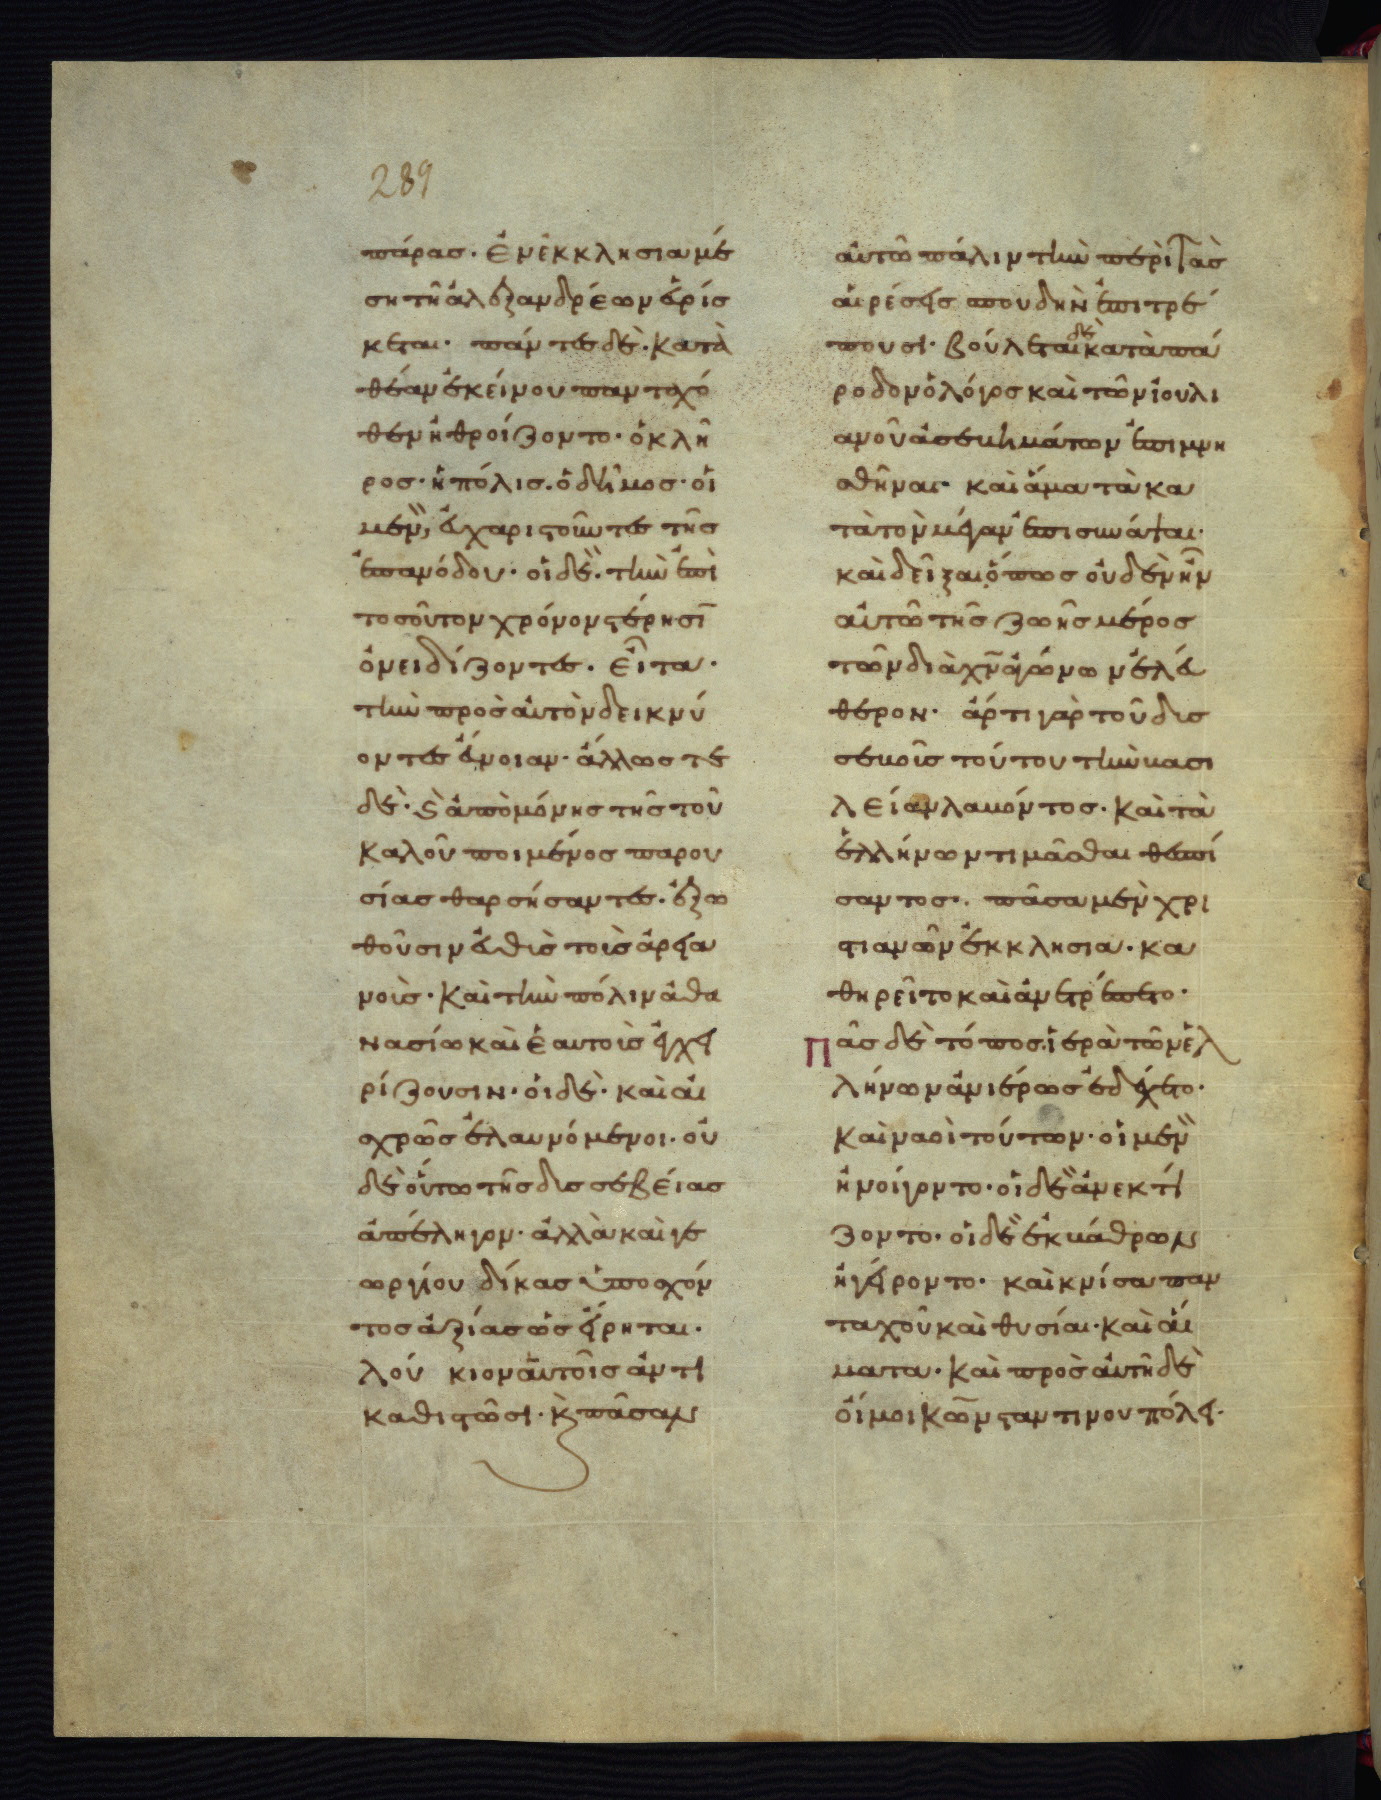 289
πάρας· ἐν ἐκκλησία μέ
ση τῆ ἀλεξανδρέων εὑρίσ
κεται· πάντες δὲ· κατὰ
θέαν ἐκείνου πανταχό
θεν ἠθροίζοντο· ὁ κλῆ
ρος· ἡ πόλις. ὁ δῆμος· οἱ
μὲν, εὐχαριστοῦντες τῆς
ἐπανόδου· οἱ δὲ. τὴν ἐπὶ
τοσοῦτον χρόνον στέρησι
ὀνειδίζοντες. εἶτα·
τὴν πρὸς αὐτὸν δεικνύ
οντες εὔνοιαν· ἄλλως τέ
δὲ· καὶ ἀπὸ μόνης τῆς τοῦ
καλοῦ ποιμένος παρου
σίας θαρσήσαντες. ἐξω
θοῦσιν εὐθὺς τοὺς ἀρεια
νοὺς· καὶ τὴν πόλιν ἀθα
νασίω καὶ ἑαυτοῖς ἐγχει
ρίζουσιν· οἱ δὲ· καὶ αἰ
σχρῶς ἐλαυνόμενοι. οὐ
δὲ οὕτω τῆς δυσσεβείας
ἀπέληγον· ἀλλὰ καὶ γε
ωργίου δίκας ὑποσχόν
τος ἀξίας ὡς εἴρηται·
λούκιον αὐτοῖς ἀντι
καθιστῶσι· καὶ πᾶσαν
αὐτῶ πάλιν τὴν περὶ τὰς
αἱρέσεις σπουδὴν ἐπιτρέ
πουσι· βούλεται δὲ κατὰ πά
ροδον ὁ λόγος καὶ τῶν ἰουλι
ανοῦ ἀσεβημάτων ἐπιμνη
σθῆναι· καὶ ἅμα τὰ κα
τὰ τὸν μέγαν ἐπισυνάψαι·
καὶ δεῖξαι ὅπως οὐδὲν ἦν
αὐτῶ τῆς ζωῆς μέρος
τῶν διὰ χν ἀγώνων ἐλεύ
θερον· ἄρτι γὰρ τοῦ δυσ
σεβοῦς τούτου τὴν βασι
λείαν λαβόντος· καὶ τὰ
ἑλλήνων τιμᾶσθαι θεσπί
σαντος·. πᾶσα μὲν χρι
στιανῶν ἐκκλησία· κα
θηρεῖτο καὶ ἀνετρέπετο·
Πᾶς δὲ τόπος. ἱερὰ τῶν ἑλ
λήνων ἀνιέρως ἐδέχετο·
καὶ ναοὶ τούτων· οἱ μὲν
ἠνοίγοντο· οἱ δὲ ἀνεκτί
ζοντο· οἱ δὲ ἐκ βάθρων
ἠγείροντο· καὶ κνίσα παν
ταχοῦ καὶ θυσίαι· καὶ αἵ
ματα· καὶ πρὸς αὐτῆ δὲ
οἴμοι κωνσταντίνου πόλει·